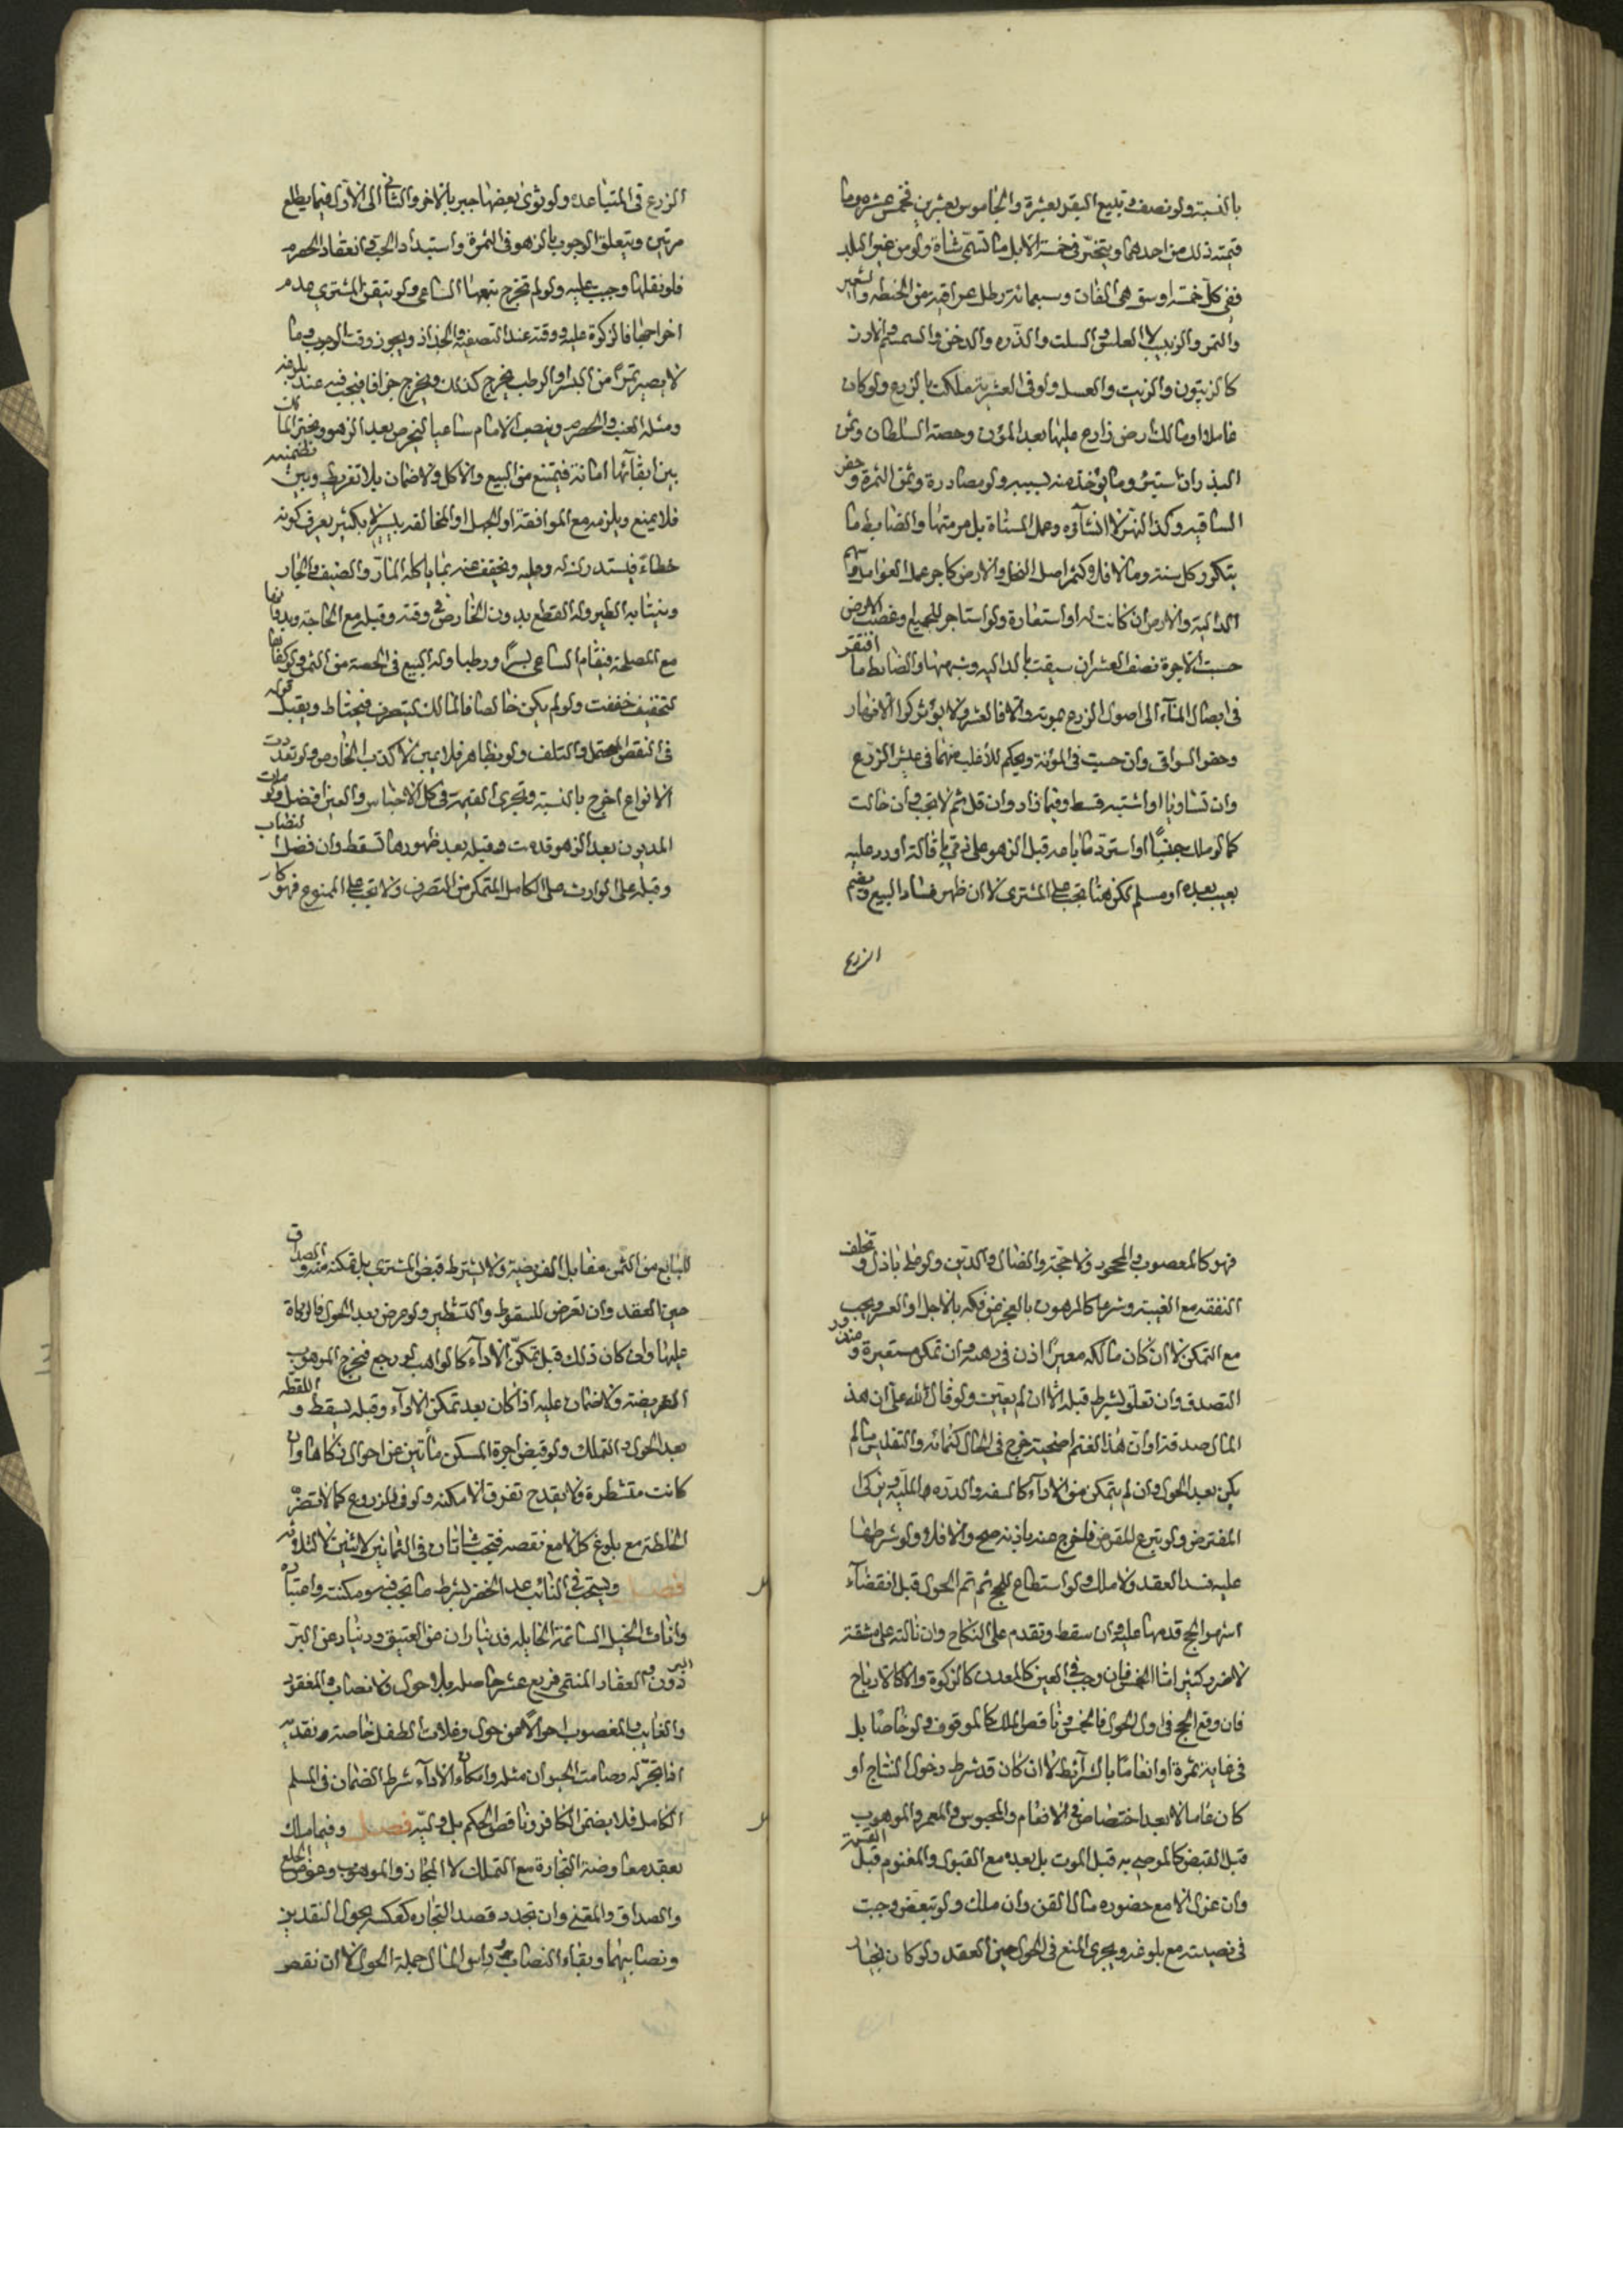 بالنسبة ولو نصف تبيع البقر بعشرة والجاموس بعشرين فخمس عشرة وما
قيمته ذلك من احدهما ويتخير في خمسة الابل ما تسمى شاة ولو من غير البلد
ففي كل خمسة اوسق هي الفان وسبعمائة رطل عراقية من الحنطة والشعير
والتمر والزبيب لا العلس والسلت والذره والدخن والسمسم والارز
كالزيتون والزيت والعسل ولو في العشرية ملكت بالزرع ولو كان
عاملا او مالك ارض زارع عليها بعد المؤن وحصة السلطان وثمن
البذر ان استثنى وما يؤخذ منه بسببه ولو مصادرة وثمن الثمرة وحفر
الساقيه وكذا النهر لا انشآؤه وعمل المسناة بل مرمتها والضابط ما
يتكرر كل سنة وما لا فلا وكثمر اصل النخل والارض كاجر عمل العوامل
الدالية والارض ان كانت له او استعارة ولو استاجر للجميع وغصب الارض
حسبت الاجرة نصف العشر ان سقيت بالداليه وشبهها والضابط ما افتقر
في ايصال المآء الى اصول الزرع مؤنة والا فالعشر ولا يؤثر كرا الانهار
وحفر السواقي وان حسبت في المؤنة ويحكم للأغلب منهما في عيش الزرع
وان تساويا او اشتبه قسط وفيما زاد وان قل ثم لا تجب وان حالت
كما لو ملك جنينًا او استرد ما باعه قبل الزهو على ذمي باقالة او رد عليه
بعيب بعده او مسلم لكن هنا تجب على المشتري لا ان ظهر فساد البيع ويضم
الزرع
الزرع في المتباعده ولو نوى بعضها جبر بالاخر والثاني الى الاول فيما يطلع
مرتين ويتعلق الوجوب بالزهو في الثمرة واشتداد الحب وانعقاد الحصرم
فلو نقلها وجب عليه ولو لم تخرج تبعها الساعي ولو تيقن المشتري عدم
اخراجها فالزكوة عليه ووقته عند التصفيه والجذاذ ويجوز وقت الوجوب وما
لا يصير تمرا من البسر او الرطب يخرج كذلك ويخرج جزافا فتجب فيه عند بلوغه
ومثله العنب والحصرم وينصب الامام ساعيا ليخرص بعد الزهو ويخير المالك
بين ابقآئها امانة فيمتنع من البيع والاكل ولا ضمان بلا تفريط وبين تضمينه
فلا يمنع ويلزمه مع الموافقة او الجهل او المخالفه بيسير لا بكثير يعرف كونه
خطاء فيستدرك له وعليه ويخفف عنه بما ياكله المار والضيف والجار
وينتابه الطير وله القطع بدون الخارص في وقته وقبله مع الحاجة وبدونها
مع المصلحة فيقاسم الساعي بسرا ورطبا وله البيع في الحصة من الثمر ولو كفاها
لتخفيف خففت ولو لم يكن خالصا فالمالك يتصرف فيحتاط ويقبل قوله
في النقص المحتمل والتلف ولو بظاهر فلا يمين لا كذب الخارص ولو تعددت
الانواع اخرج بالنسبة وتجزي القيمة في كل الاجناس والعين افضل ولو مات
المديون بعد الزهو قدمت وقبله بعد ظهورها تسقط وان فضل النصاب
وقبله على الوارث على الكامل المتمكن من التصرف ولا تجب على الممنوع فهو كار
فهو كالمغصوب والمجحود ولا حجة والضال والدين ولو على باذل وتخلف
النفقه مع الغيبة وشرعا كالمرهون بالعجز عن فكه بالاجل او العسر ويجب
مع التمكن لا ان كان مالكه معيرا اذن في رهنه وان تمكن مستعيره ومنذور
التصدق وان تعلق بشرط قبله الا ان لم يعين ولو قال لله علي ان هذ
المال صدقة او ان هذا الغنم اضحية خرج في الحال كنمائه والتفليس ما لم
يكن بعد الحول وان لم يتمكن من الادآء كالسفه والدرة والملية وتزكى
المقترض ولو تبرع المقرض فاخرج عنه باذنه صح والا فلا ولو شرطها
عليه فسد العقد ولا ملك ولو استطاع للحج ثم تم الحول قبل انقضآء
اشهر الحج قدمها عليه وان سقط وتقدم على النكاح وان نالته على مشقة
لا ضرر كثير اما الخمس فان وجب في العين كالمعدن كالزكوة والا كالارباح
فان وقع الحج في اول الحول فالخمس وناقص الملك كالموقوف ولو خاصا بل
في غايته ثمرة او انعاما بالشرائط الا ان كان قد شرط دخول النتاج او
كان عاما الا بعد اختصاص في الانعام والمحبوس والمعمر والموهوب
قبل القبض كالموصى به قبل الموت بل بعده مع القبول والمغنوم قبل القسمة
وان عزل الا مع حضوره مال القن وان ملك ولو تبعض وجبت
في نصيبه مع بلوغه ويجري المنع في الحول حين العقد ولو كان بخيار
للبايع من الثمن مقابل الفريضة ولا يشترط قبض المشتري بل تمكنه منه والصداق
حين العقد وان تعرض للسقوط والتشطير ولو عرض بعد الحول فالزكاة
عليها وان كان ذلك قبل تمكن الادآء كالواهب لو رجع فتخرج الموهوب
الفريضة ولا ضمان عليه اذا كان بعد تمكن الادآء وقبله يسقط واللقطة
بعد الحول والتملك ولو قبض اجرة المسكن مأتين عن احوال زكاها وان
كانت متشطرة ولا يقدح تفرق الامكنة ولو في المزروع كما لا تضر
الخلطة مع بلوغ كل لا مع نقصه فتجب شاتان في الثمانين لاثنين لا لثلاثة
فصل ويستحب في النابت عدا الخضر بشرط ما تجب فيه ومكنسه واعتباره
واناث الخيل السائمة الحايله فديناران عن العتيق ودينار عن البر
ذون والعقار المتخذ فربع عشر حاصله بلا حول ولا نصاب والمفقود
والغايب والمغصوب احوالا فعن حول وغلات الطفل خاصة ونقديه
اذا تجر له وصامت الحيوان مثله وامكان الادآء شرط الضمان في المسلم
الكامل فلا يضمن الكافر وناقص الحكم بل وليه فصل وفيما ملك
بعقد معاوضة التجارة مع التملك لا المجان والموهوب وعوض الخلع
والصداق والمقني وان تجدد قصد التجارة كعكسه بحول النقدين
ونصابيهما وبقاء النصاب وراس المال جملة الحول لا ان نقص